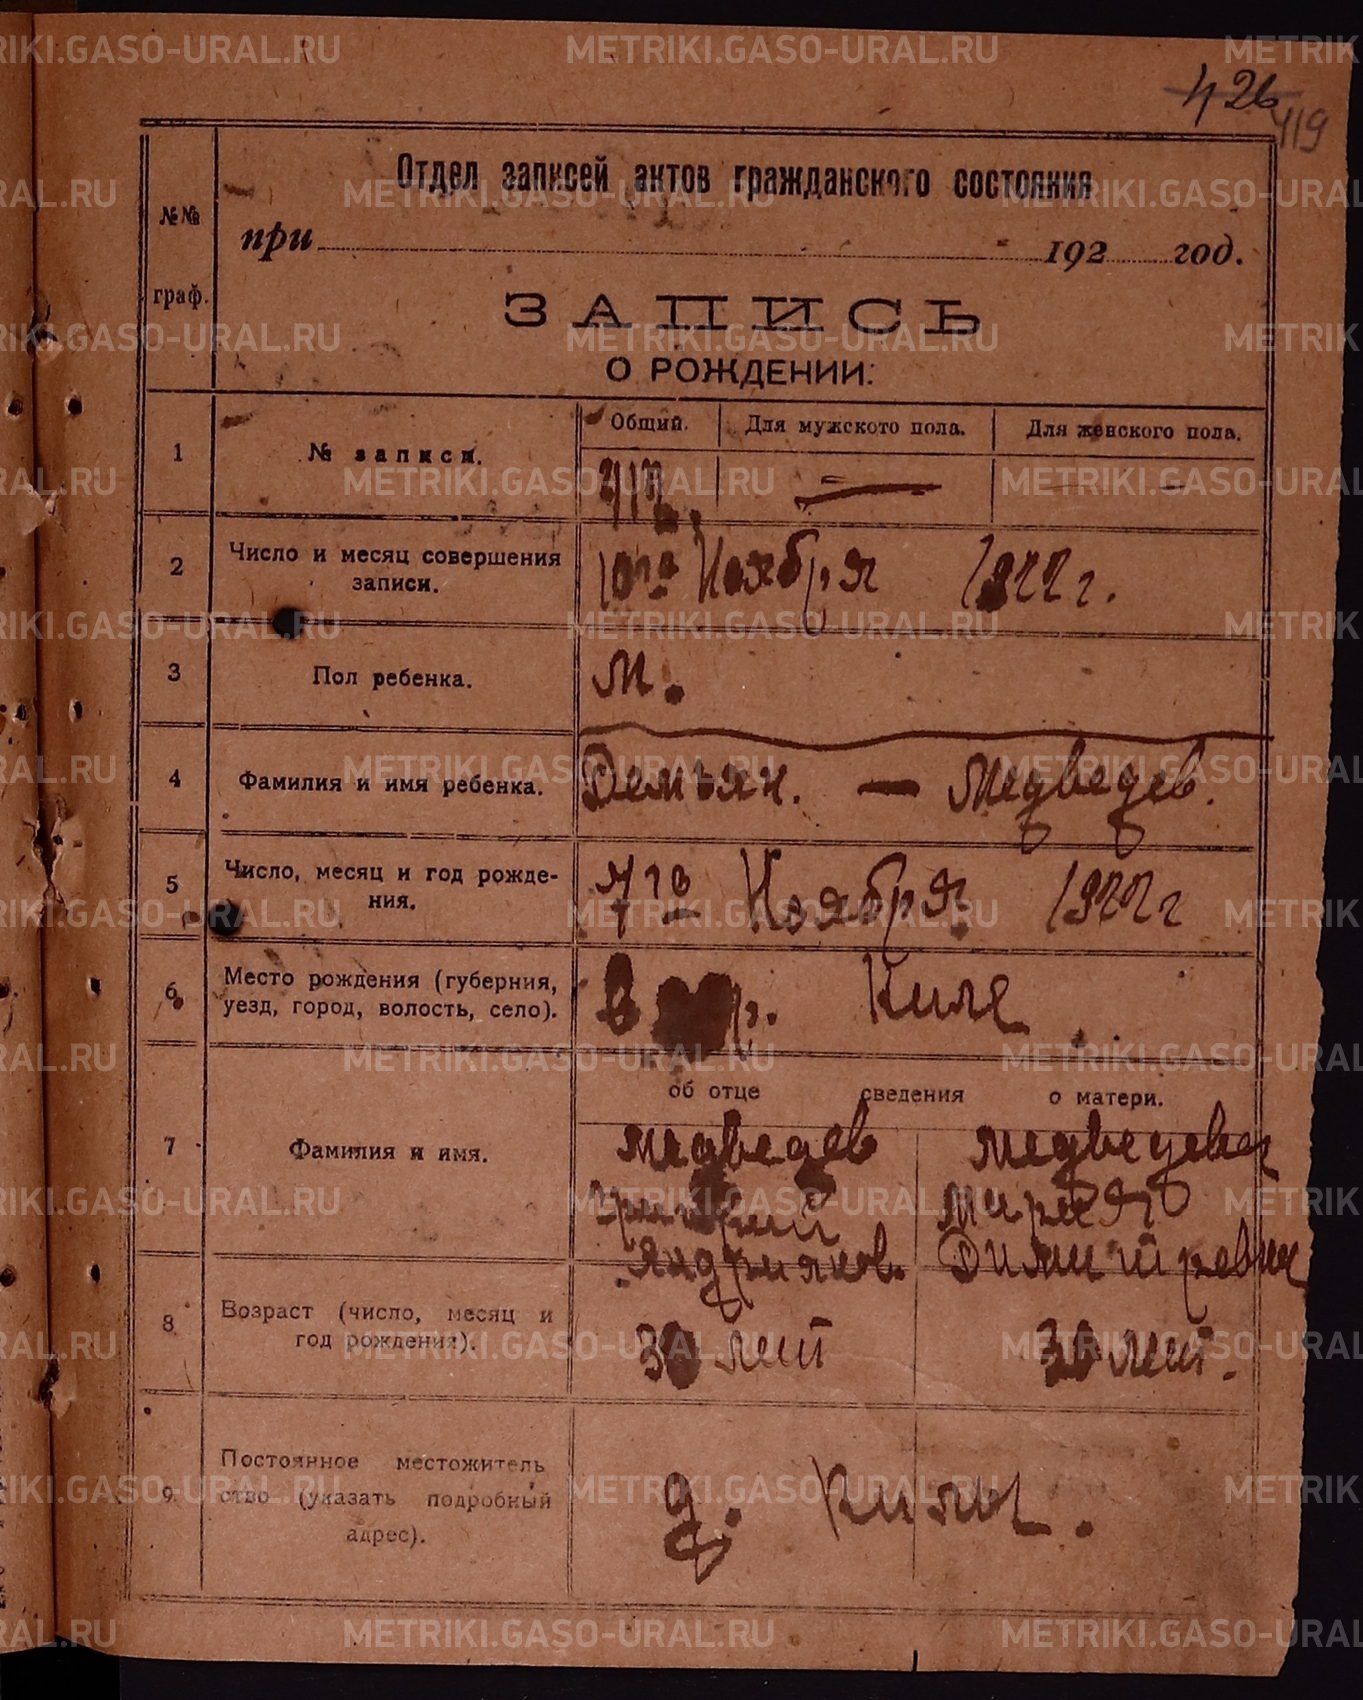 426
419
Отдел записей актов гражданского состояния
№№ граф.
при 192 год.
ЗАПИСЬ
О РОЖДЕНИИ:
1 № записи. Общий. Для мужского пола. Для женского пола.
2 Число и месяц совершения записи. 10го Ноября 1922 г.
3 Пол ребенка. М.
4 Фамилия и имя ребенка. Демьян. — Медведев.
5 Число, месяц и год рожде-
ния. 7го Ноября 1922 г
6 Место рождения (губерния, В Киля
уезд, город, волость, село).
об отце сведения о матери.
7 Фамилия и имя. Медведев Медведева
Григорий Мария
Андриянов. Димитревна
8 Возраст (число, месяц и
год рождения). 30 лет 30 лет.
9 Постоянное местожитель
ство (указать подробный д. Килы.
адрес).
METRIKI.GASO-URAL.RU